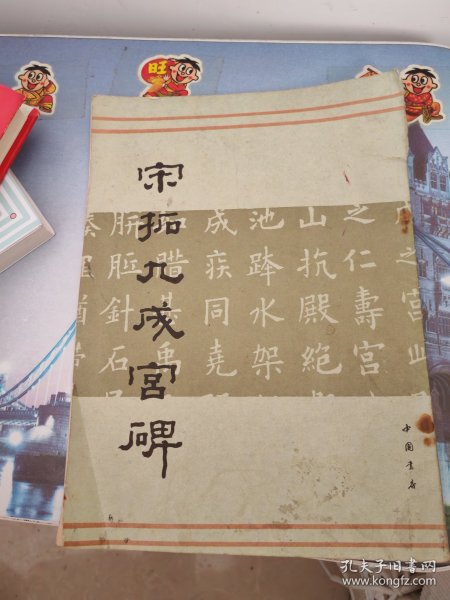 宋拓九成宫碑
之宫此
之仁壽宫
山抗殿絕
池跨水架
成疾同堯
如腊甚禹
胼胝針石
中国书店
旺
孔夫子旧书网
www.kongfz.com